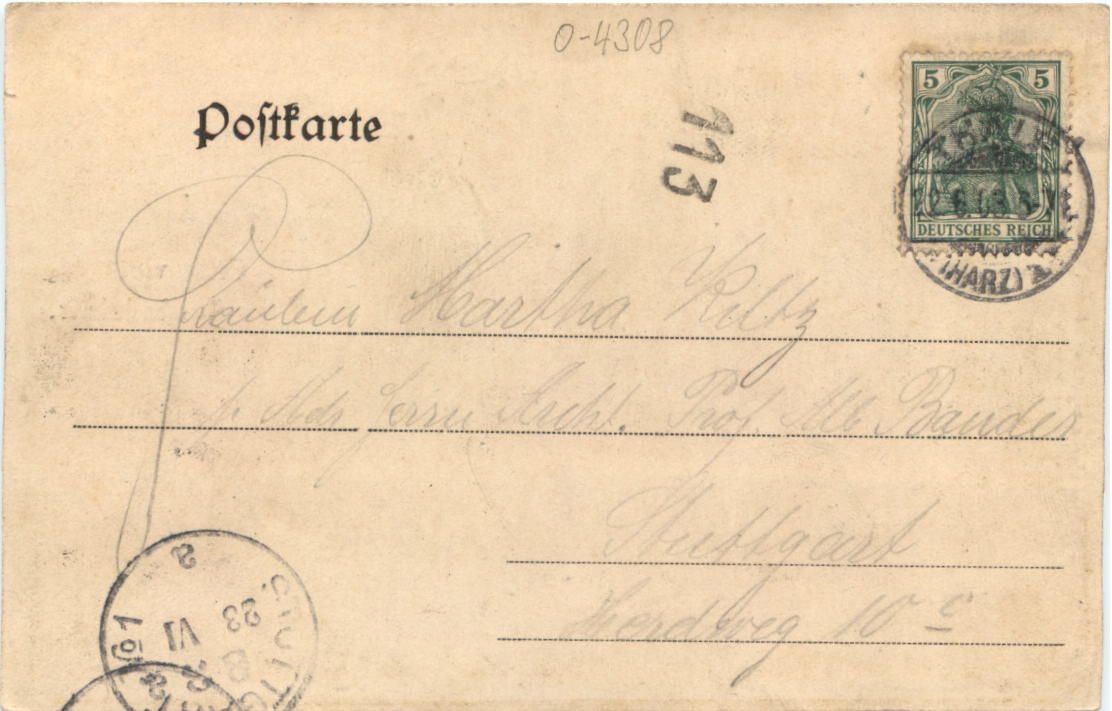 0-4308
Postkarte
113
5 5
DEUTSCHES REICH
(HARZ)
Fräulein Martha Kiltz
Adr. Herrn Archt. Prof. Alb. Bauder
Stuttgart
Herdweg 10 c
STUTTG
23
VI